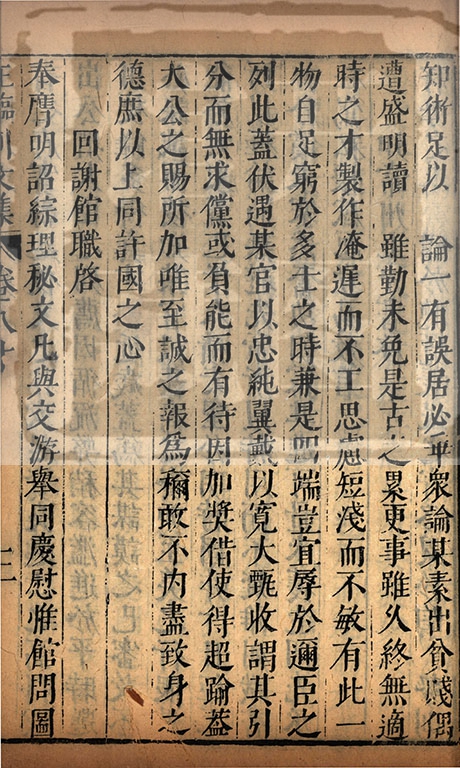 知術足以　論一有誤居必乖衆論某素出貧賤偶
遭盛明讀　雖勤未免是古之累更事雖久終無適
時之才製作淹遲而不工思慮短淺而不敏有此一
物自足窮於多士之時兼是四端豈宜辱於邇臣之
列此蓋伏遇某官以忠純翼戴以寛大甄收謂其引
分而無求儻或負能而有待因加奬借使得超踰蓋
大公之賜所加唯至誠之報爲稱敢不内盡致身之
德庶以上同許國之心
回謝館職啓
奉膺明詔綜理秘文凡與交游舉同慶慰惟館問圖
王臨川文集　卷八十